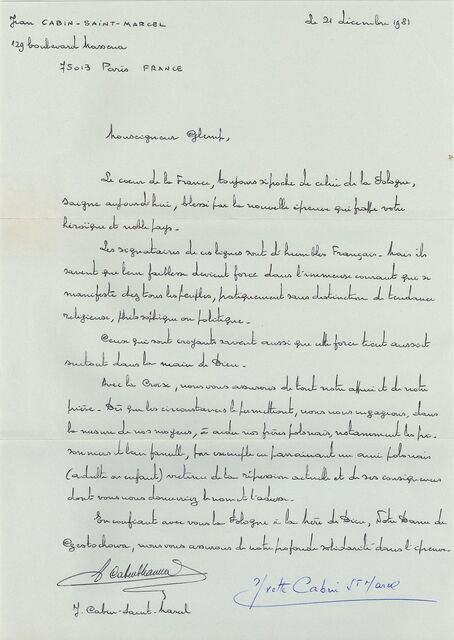 Jean CABIN-SAINT-MARCEL
le 21 décembre 1981
129 boulevard Massena
75013 Paris FRANCE
Monseigneur Glemp,
Le coeur de la France, toujours si proche de celui de la Pologne,
saigne aujourd'hui, blessé par la nouvelle épreuve qui frappe votre
héroïque et noble pays.
Les signataires de ces lignes sont d'humbles Français. Mais ils
savent que leur faiblesse devient force dans l'immense courant qui se
manifeste chez tous les peuples, pratiquement sans distinction de tendance
religieuse, philosophique ou politique.
Ceux qui sont croyants savent aussi que cette force tient aussi et
surtout dans la main de Dieu.
Avec la Croix, nous vous assurons de tout notre appui et de notre
prière. Dès que les circonstances le permettront, nous nous engageons, dans
la mesure de nos moyens, à aider nos frères polonais, notamment les pri-
sonniers et leur famille, par exemple en parrainant un ami polonais
(adulte ou enfant) victime de la répression actuelle et de ses conséquences
dont vous nous donneriez le nom et l'adresse.
En confiant avec vous la Pologne à la Mère de Dieu, Notre Dame de
Czestochowa, nous vous assurons de notre profonde solidarité dans l'épreuve.
Yvette Cabin St Marcel
J. Cabin-Saint-Marcel